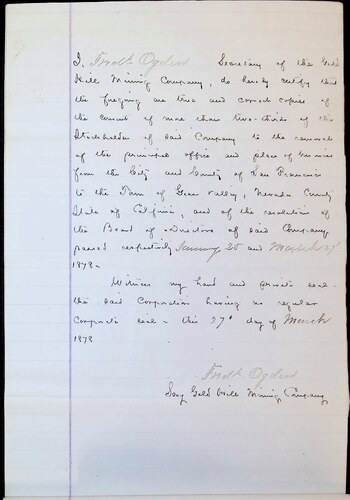 I, Fredk Ogden Secretary of the Gold
Hill Mining Company, do hereby certify that
the foregoing are true and correct copies of
the consent of more than two-thirds of the
Stockholders of said Company to the removal
of the principal office and place of business
from the City and County of San Francisco
to the Town of Grass Valley, Nevada County
State of California, and of the resolution of
the Board of Directors of said Company
passed respectively January 25 and March 27
1878.
Witness my hand and private seal
the said Corporation having no regular
Corporate seal this 27 day of March
1878
Fredk Ogden
Secy Gold Hill Mining Company